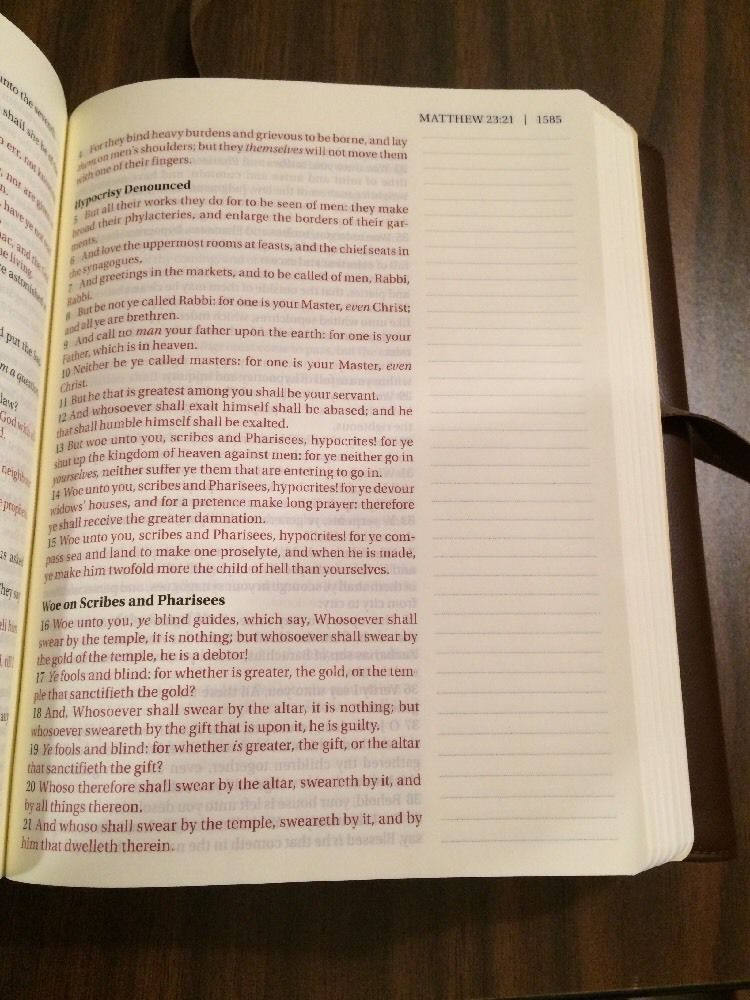 MATTHEW 23:21 | 1585
4 For they bind heavy burdens and grievous to be borne, and lay
them on men's shoulders; but they themselves will not move them
with one of their fingers.
Hypocrisy Denounced
5 But all their works they do for to be seen of men: they make
broad their phylacteries, and enlarge the borders of their gar-
ments,
6 And love the uppermost rooms at feasts, and the chief seats in
the synagogues,
7 And greetings in the markets, and to be called of men, Rabbi,
Rabbi.
8 But be not ye called Rabbi: for one is your Master, even Christ;
and all ye are brethren.
9 And call no man your father upon the earth: for one is your
Father, which is in heaven.
10 Neither be ye called masters: for one is your Master, even
Christ.
11 But he that is greatest among you shall be your servant.
12 And whosoever shall exalt himself shall be abased; and he
that shall humble himself shall be exalted.
13 But woe unto you, scribes and Pharisees, hypocrites! for ye
shut up the kingdom of heaven against men: for ye neither go in
yourselves, neither suffer ye them that are entering to go in.
14 Woe unto you, scribes and Pharisees, hypocrites! for ye devour
widows' houses, and for a pretence make long prayer: therefore
ye shall receive the greater damnation.
15 Woe unto you, scribes and Pharisees, hypocrites! for ye com-
pass sea and land to make one proselyte, and when he is made,
ye make him twofold more the child of hell than yourselves.
Woe on Scribes and Pharisees
16 Woe unto you, ye blind guides, which say, Whosoever shall
swear by the temple, it is nothing; but whosoever shall swear by
the gold of the temple, he is a debtor!
17 Ye fools and blind: for whether is greater, the gold, or the tem-
ple that sanctifieth the gold?
18 And, Whosoever shall swear by the altar, it is nothing; but
whosoever sweareth by the gift that is upon it, he is guilty.
19 Ye fools and blind: for whether is greater, the gift, or the altar
that sanctifieth the gift?
20 Whoso therefore shall swear by the altar, sweareth by it, and
by all things thereon.
21 And whoso shall swear by the temple, sweareth by it, and by
him that dwelleth therein.